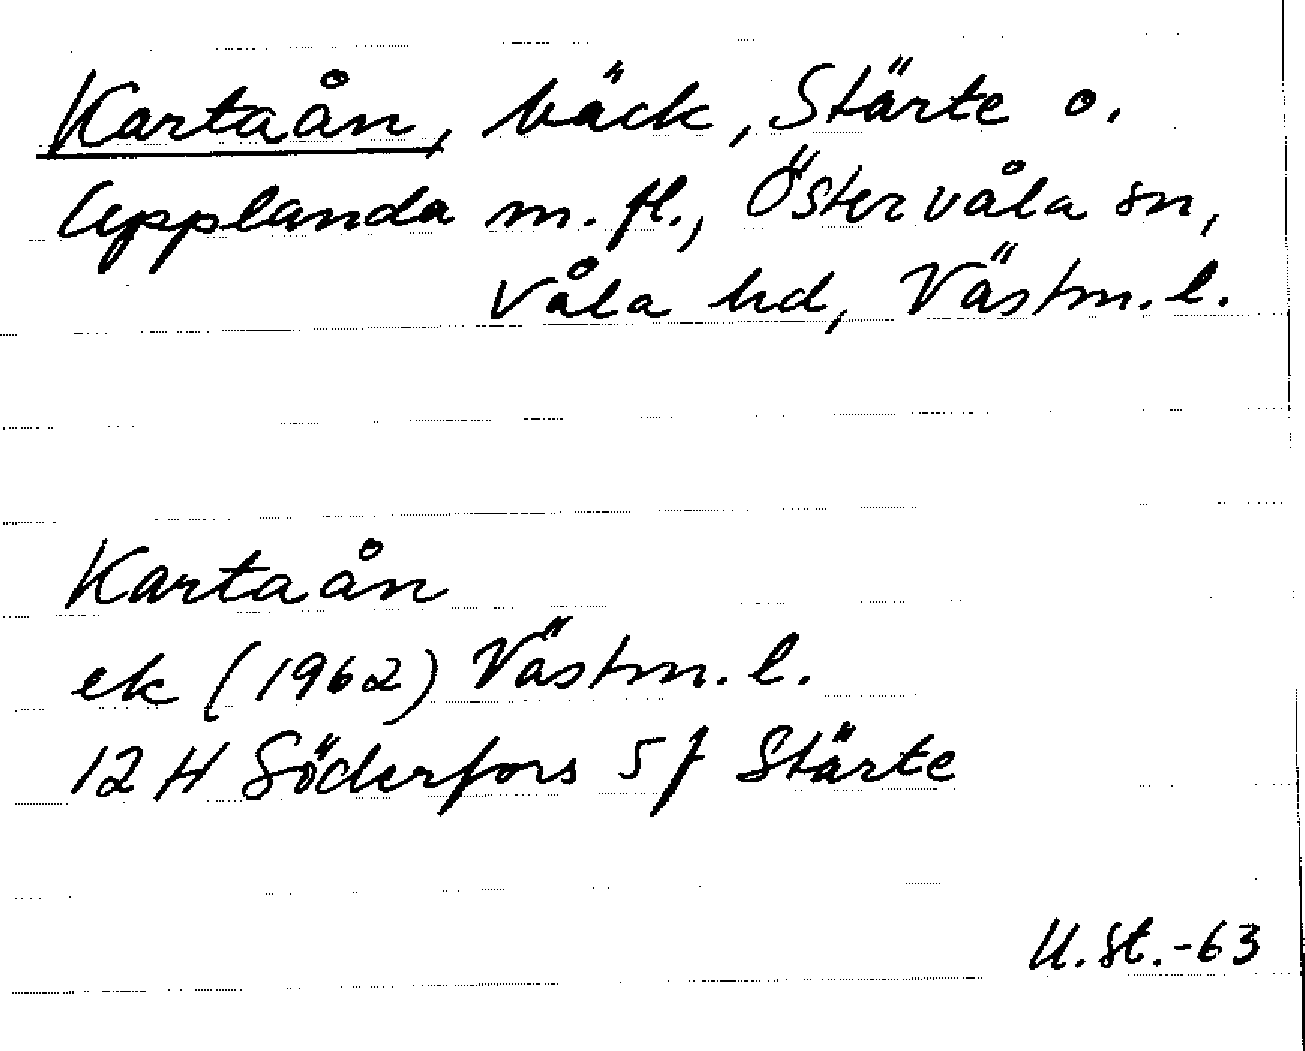 Kartaån, bäck, Stärte o.
Upplanda m. fl., Östervåla sn,
Våla hd, Västm. l.
Kartaån
ek (1962) Västm. l.
12 H Söderfors 5 f Stärte
U. St. -63